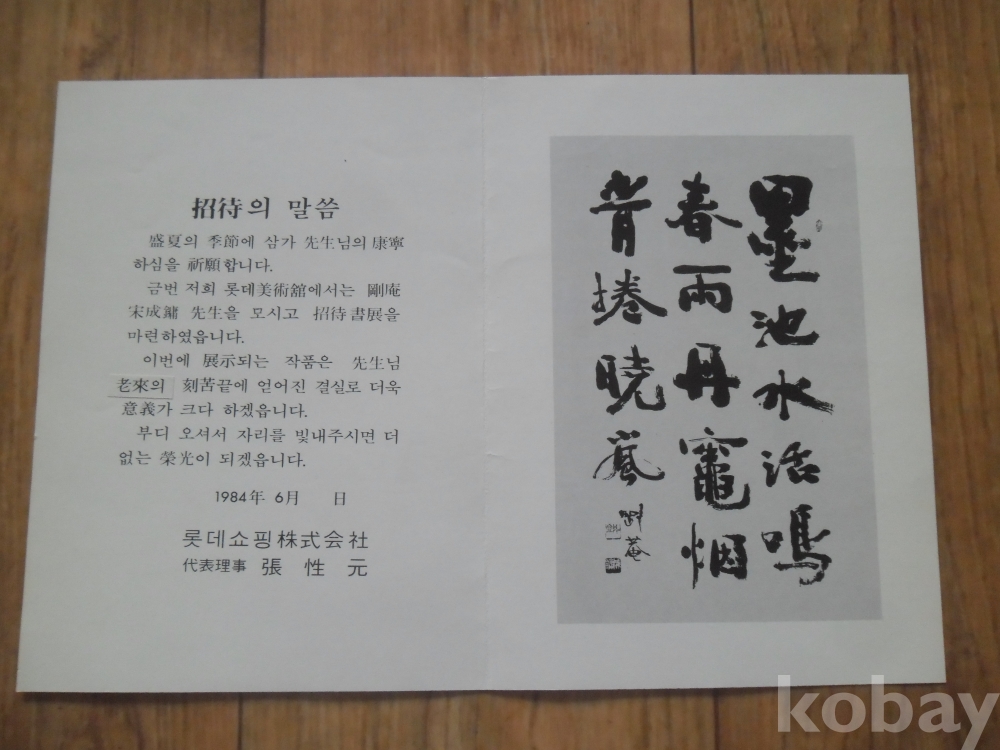 招待의 말씀
盛夏의 季節에 삼가 先生님의 康寧
하심을 祈願합니다.
금번 저희 롯데美術舘에서는 剛庵
宋成鏞 先生을 모시고 招待書展을
마련하였읍니다.
이번에 展示되는 作품은 先生님
老來의 刻苦끝에 얻어진 결실로 더욱
意義가 크다 하겠읍니다.
부디 오셔서 자리를 빛내주시면 더
없는 榮光이 되겠읍니다.
1984年 6月 日
롯데쇼핑株式会社
代表理事 張性元
墨池水活鳴
春雨丹竈烟
青捲曉嵐
剛菴
kobay